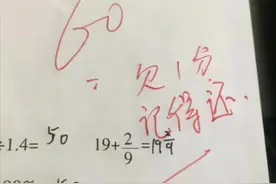 60
欠1分
记得还.
÷1.4= 50 19+2/9=19 2/9